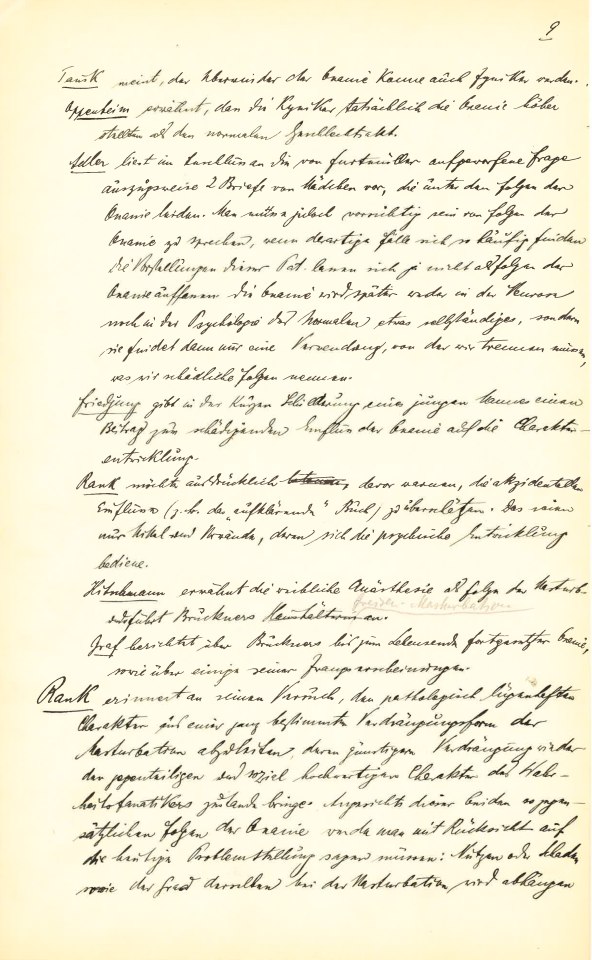 9
Tausk meint, der Übermeister der Onanie könne auch Zyniker werden.
Oppenheim erwähnt, dass die Kyniker tatsächlich die Onanie höher
stellten als den normalen Geschlechtsakt.
Adler liest im Anschluss an die von Furtmüller aufgeworfene Frage
auszugsweise 2 Briefe von Mädchen vor, die unter den Folgen der
Onanie leiden. Man müsse jedoch vorsichtig sein von Folgen der
Onanie zu sprechen, wenn derartige Fälle sich so häufig finden
die Vorstellungen dieser Pat. lassen sich ja nicht als Folgen der
Onanie auffassen. die Onanie wird später weder in der Neurose
noch in der Psychologie des Normalen etwas selbständiges, sondern
sie findet dann nur eine Verwendung, von der wir trennen müssen,
was wir schädliche Folgen nennen.
Friedjung gibt in der kurzen Schilderung eines jungen Mannes einen
Beitrag zum schädigenden Einfluss der Onanie auf die Charakter-
entwicklung.
Rank möchte ausdrücklich davor warnen, die akzidentellen
Einflüsse (z.b. das "aufklärende" Buch) zu überschätzen. Das seien
nur Mittel und Vorwände, deren sich die psychische Entwicklung
bediene.
Hitschmann erwähnt die weibliche Anästhesie als Folge der Masturb.
und führt Brückners Haushälterinnen
Masturbation
an.
Graf berichtet über Brückners bis zum Lebensende fortgesetzter Onanie,
sowie über einige seiner Zwangserscheinungen.
Rank erinnert an seinen Versuch, den pathologisch lügenhaften
Charakter aus einer ganz bestimmten Verdrängungsform der
Masturbation abzuleiten, deren günstigere Verdrängung wieder
den gegenteiligen und sozial hochwertigen Charakter des Wahr-
heitsfanatikers zustande bringe. Angesichts dieser beiden so gegen-
sätzlichen Folgen der Onanie werde man mit Rücksicht auf
die heutige Problemstellung sagen müssen: Nutzen oder Schaden
sowie der Grad derselben bei der Masturbation wird abhängen